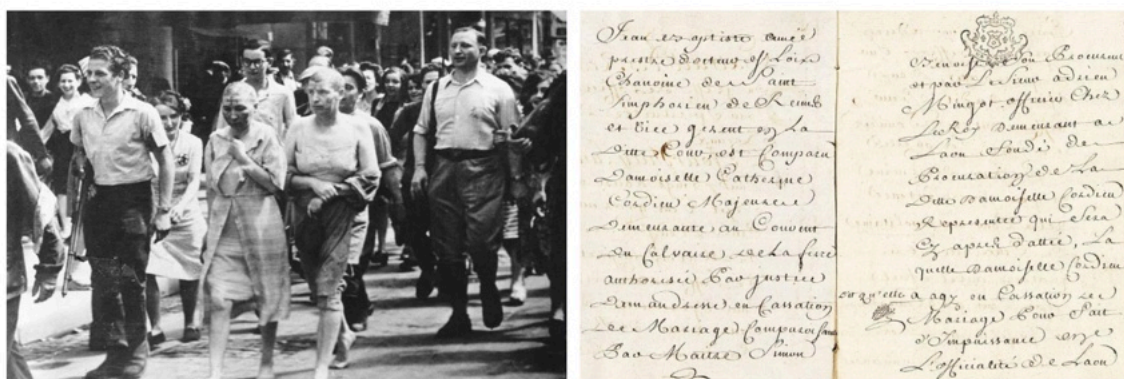 Jean Baptiste
prestre docteur es Loix
Chanoine de Saint
Simphorien de Reims
et vice gerent en La
ditte Cour, est Comparu
damoiselle Catherine
Cordieu Majeure
demeurante au Couvent
du Calvaire de La fere
authorisée Par justice
demanderesse en Cassation
de Mariage Comparant
Par Maitre Simon
Benoist son Procureur
et par Le Sieur adrien
Mingot officier Chez
Le Roy demeurant a
Laon fondé de
Procuration de La
ditte damoiselle Cordieu
Representée qui sera
Cy apres dattée, La
quelle damoiselle Cordieu
dit qu'elle a agy en Cassation de
Mariage Pour fait
d'Impuissance en
L'officialité de Laon